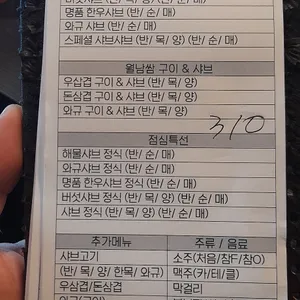 버섯샤브 (반/ 목/ 양) (반/ 순/ 매)
명품 한우샤브 (반/ 순/ 매)
와규 샤브 (반/ 순/ 매)
스페셜 샤브샤브 (반/ 목/ 양) (반/ 순/ 매)
월남쌈 구이 & 샤브
우삼겹 구이 & 샤브 (반/ 목/ 양)
돈삼겹 구이 & 샤브 (반/ 목/ 양)
와규 구이 & 샤브 (반/ 목/ 양)
310
점심특선
해물샤브 정식 (반/ 순/ 매)
와규샤브 정식 (반/ 순/ 매)
명품 한우샤브 정식 (반/ 순/ 매)
버섯샤브 정식 (반/ 목/ 양) (반/ 순/ 매)
샤브 정식 (반/ 목/ 양) (반/ 순/ 매)
추가메뉴 주류 / 음료
샤브고기 소주(처음/참F/참O)
(반/ 목/ 양/ 한목/ 와규) 맥주(카/테/클)
우삼겹/돈삼겹 막걸리